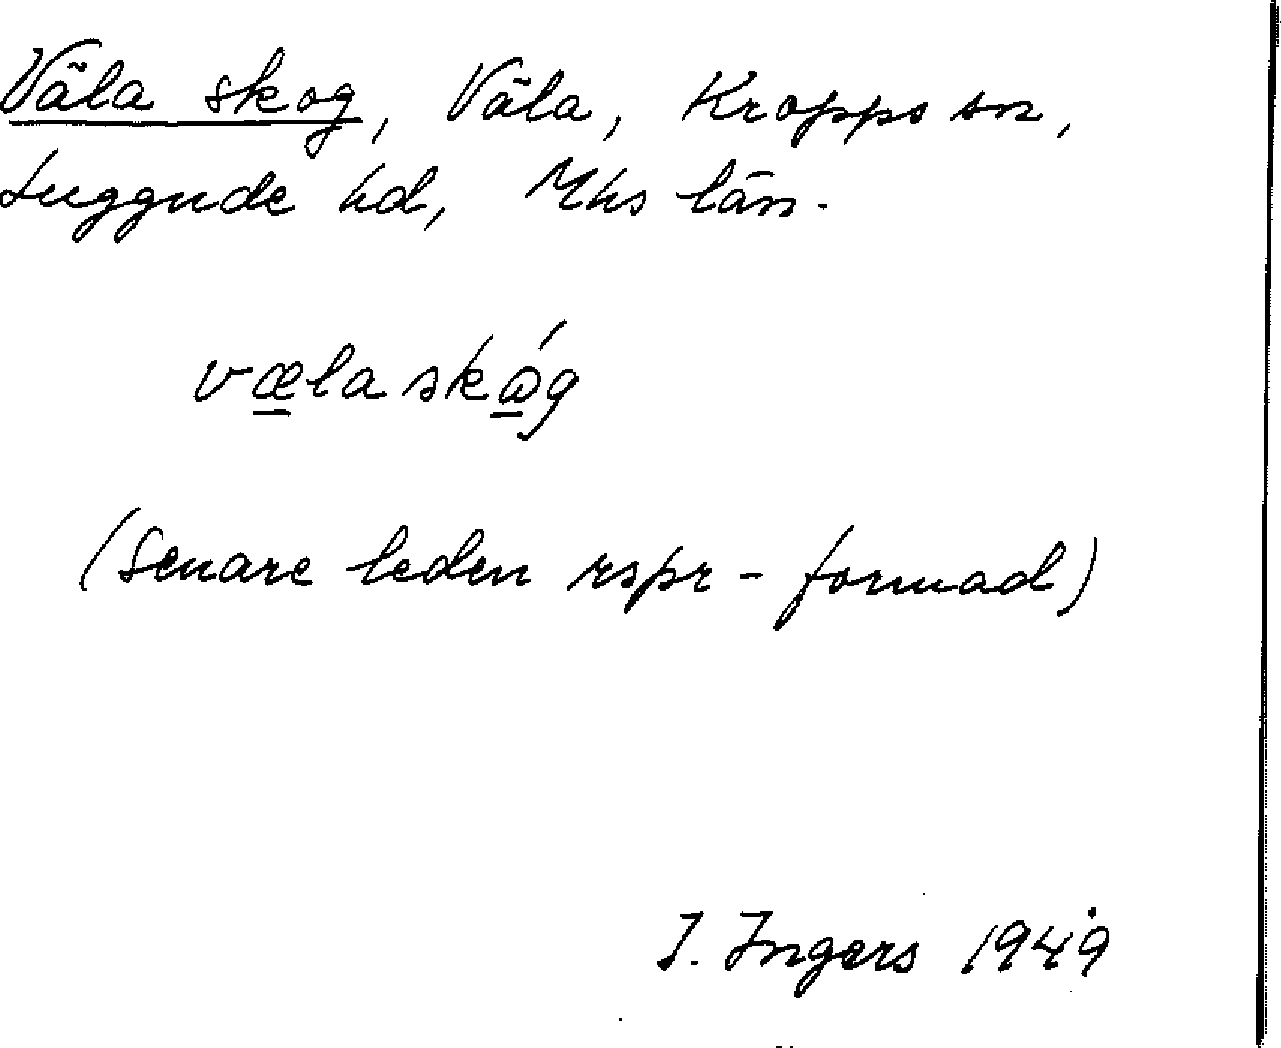 Väla skog, Väla, Kropps sn,
Luggude hd, Mhs län.
væ̲laskɷ̲́g
(Senare leden rspr-formad)
I. Ingers 1949